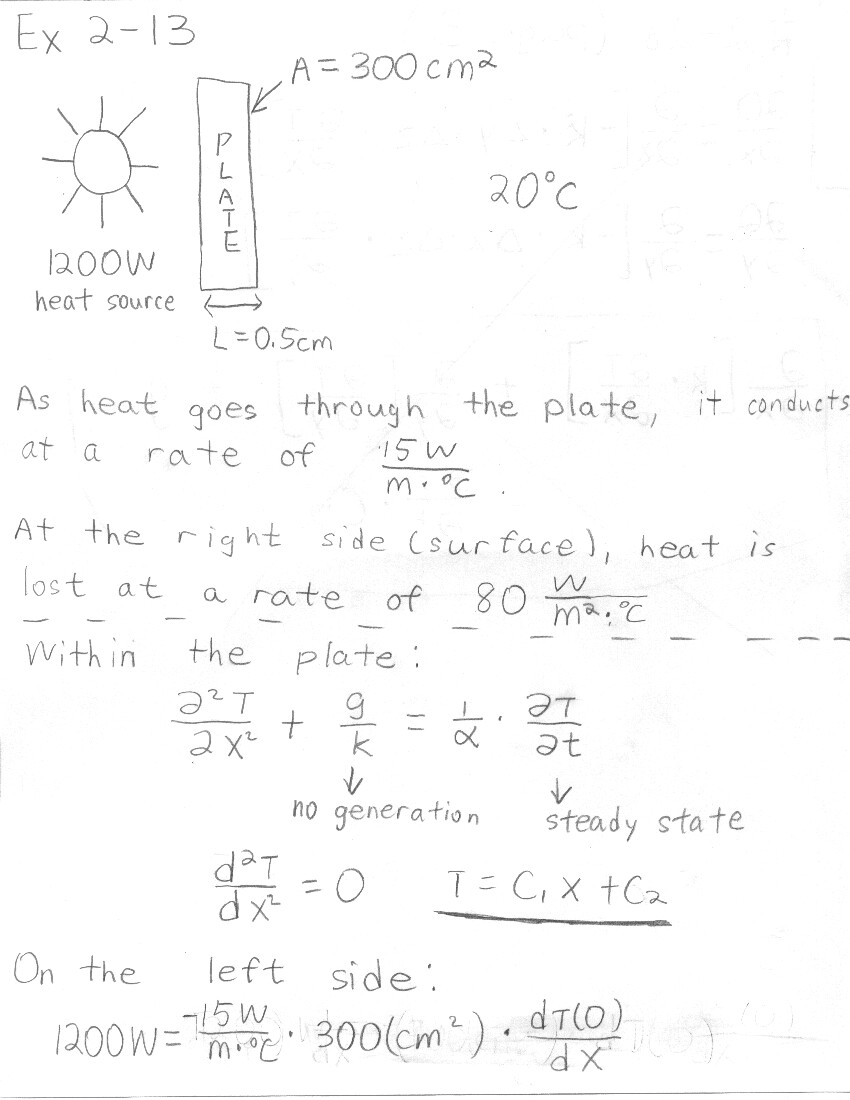 Ex 2-13
A = 300 cm²
PLATE
20°C
1200W
heat source
L=0.5cm
As heat goes through the plate, it conducts
at a rate of 15 W / m·°C .
At the right side (surface), heat is
lost at a rate of 80 W / m²·°C
Within the plate:
∂²T / ∂X² + g / k = 1 / α · ∂T / ∂t
↓ ↓
no generation steady state
d²T / dX² = 0 T = C₁ X + C₂
On the left side:
1200W = -15W / m·°C · 300(cm²) · dT(0) / dX